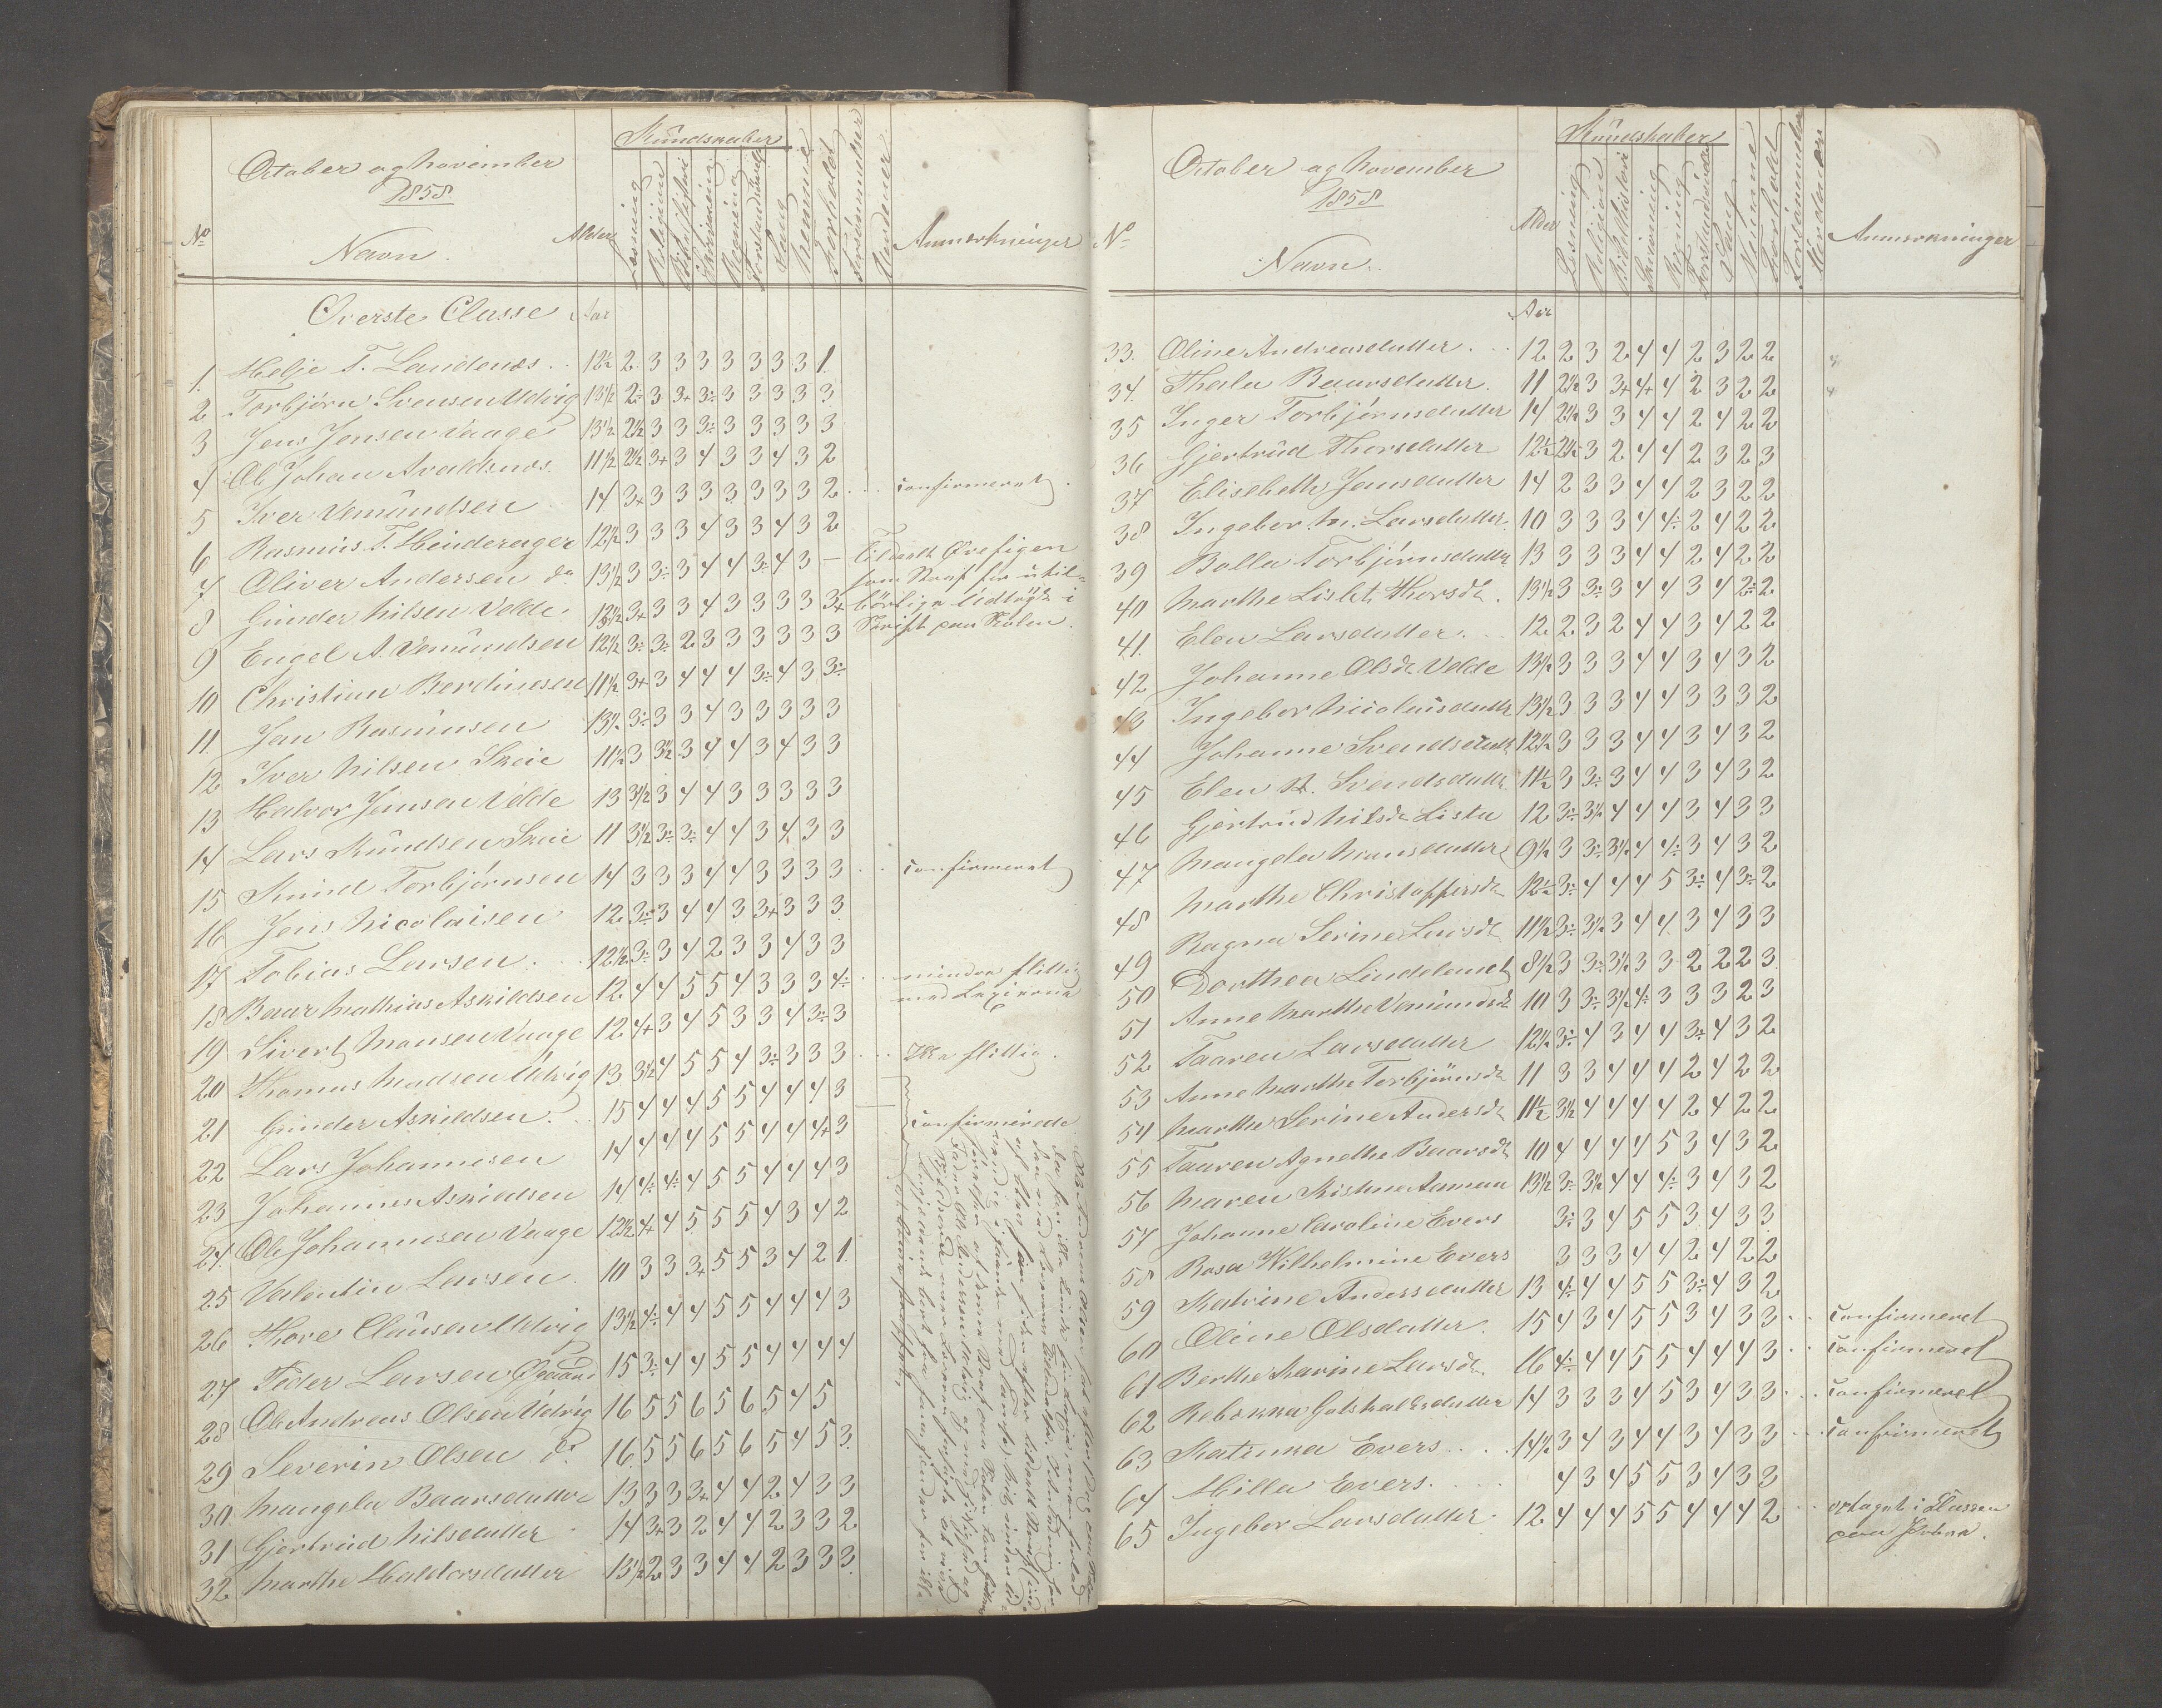 October og November
1858.
Kundskaber
No
Navn.
Alder
Læsning
Religion
Bibelhistori
Skrivning
Regning
Forstandsøvelse
Sang
Nemme
Forhold
Forsømmelser
Værdener
Anmærkninger
Øverste Classe Aar
1. Helje T. Landenæs . . 12½ 2. 3 3 3 3 3 3 3 1.
2 Torbjörn Svensen Udvig 13½ 2÷ 3 3+ 3÷ 3 3 3 3 3
3 Jens Jensen Vaage 13½ 2½ 3 3 3÷ 3 3 3 3 3
4 Ole Johan Avaldsnæs. 11½ 2½ 3+ 3 4 3 3 4 3 2
5 Iver Vemundsen 14 3+ 3 3 3 3 3 3 3 2 . . . confirmeret.
6 Rasmus T. Heinderager 12½ 3 3 3 4 3 3 4 3 2
7 Oliver Andersen do 13½ 3 3÷ 3 4 4 3÷ 4 3 — Tildeelt Ørefigen
som Straf for util-
börlige Udtryk i
Skrift paa Skolen.
8 Gunder Nilsen Velde. 13½ 3+ 3 3 4 3 3 3 3 3+
9 Engel A. Vemundsen 12½ 3÷ 3÷ 2 3 3 3 3 3 3
10 Christian Berdinesen 11½ 3+ 3 4 4 4 3÷ 4 3 3÷
11 Jan Rasmusen 13½ 3÷ 3 3 4 3 3 3 3 3
12 Iver Nilsen Skeie 11½ 3 3½ 3 4 4 3 4 3 3
13 Halvor Jensen Velde 13 3½ 3 4 4 3 3 3 3 3
14 Lars Knudsen Skeie 11 3½ 3÷ 3÷ 4 4 3 4 3 3
15 Knud Torbjörnsen 14 3 3 3 4 4 3 3 3 3 . . . confirmeret
16 Jens Nicolaisen 12 3÷ 3 4 4 3 3+ 3 3 3
17 Tobias Larsen . . . 12½ 3÷ 3 4 2 3 3 4 3 3
18 Baar Mathias Askildsen 12 4 4 5 5 4 3 3 3 4÷ . . . mindre flittig
med Lexierne
19 Sivert Monsen Vaage 12 4+ 3 4 5 3 3 4 3÷ 3
20 Thomas Madsen Udvig 13 3½ 4 5 5 4 3÷ 3 3 3 . . . Ikke flittig.
21 Gunder Askildsen. . . 15 4 4 4 5 5 4 4 4 3
22 Lars Johannesen 14 4 4 4 5 5 4 4 4+ 3 confirmerede
23 Johannes Askildsen 14 4÷ 4÷ 4 5 5 4 4 4 3
24. Ole Johannesen Vaage 12½ 4+ 4 5 5 5 4 3 4 2
25 Valentin Larsen . 10 3 3 3+ 5 5 3 4 2 1.
26 Thore Clausen Udvig 13½ 4÷ 4 4 5 5 4 4 4 3
27 Peder Larsen Øgaard 15 3÷ 4 4 5 5 4 4 4 4
28 Ole Andreas Olsen Udvig 16 5 5 6 5 6 5 4 5
29 Severin Olsen do. 16 5 5 6 5 6 5 4 5 3.
30 Mangela Baarsdatter 13 3 3 3+ 4 4 2 4 3 3
31 Gjertrud Nilsdatter 14 3+ 3 2 4 4 2 3 3 2
32 Marthe Haldorsdatter 13½ 2 3 3 4 4 2 3 3 3.
October og November
1858
Kundskaber
No
Navn.
Alder
Læsning
Religion
Bibelhistori
Skrivning
Regning
Forstandsøvelse
Sang
Nemme
Forhold
Forsømmelser
Værdener
Anmærkninger
Aar
33. Oline Andreasdatter . . . 12 2 3 2 4 4 2 3 2 2
34. Thala Baarsdatter. 11 2½ 3 3+ 4+ 4 2 3 2 2
35 Inger Torbjörnsdatter 14 2½ 3 3 4 4 2 4 2 2
36 Gjertrud Thorsdatter 12½ 2½ 3 2 4 4 2 3 2 3
37 Elisebeth Jensdatter 14 2 3 3 4 4 2 3 2 2
38 Ingebor M. Larsdatter. 10 3 3 3 4 4÷ 2 4 2 2
39 Bolla Torbjörnsdatter 13 3 3 3 4 4 2 4 2 2
40 Marthe Lisbet Thorsdr . 13½ 3 3÷ 3 4 4 3 4 2÷ 2
41. Elen Larsdatter. . . 12 2 3 2 4 4 3 4 2 2
42 Johanne Olsdr Velde 13½ 3 3 3 4 4 3 4 3 2
43 Ingebor Nicolaisdatter 13½ 3 3 3 4 4 3 3 3 2
44 Johanne Svendsdatter 12½ 3 3 3 4 4 3 4 3 2
45 Elen R. Svendsdatter 11½ 3 3÷ 3 4 4 3 4 3 2
46 Gjertrud Nilsdr Lista 12 3÷ 3½ 4 4 4 3 4 3 3
47 Mangela Monsdatter 9½ 3 3÷ 3½ 4 4÷ 3 4 3 2
48 Marthe Christoffersdr 12½ 3÷ 4 4 4 5 3÷ 4 3÷ 2
49 Ragna Serine Larsdr 11½ 3÷ 3½ 3 4 4 3 4 3 3
50 Dorthea Lindelanet 8½ 3 3÷ 3½ 3 3 2 2 2 3
51 Anne Marthe Vemundsdr 10 3 3÷ 3½ 4÷ 3 3 3 2 3
52 Taaren Larsdatter 12½ 3÷ 4 3 4 4 3÷ 4 3 2
53 Anne Marthe Torbjörnsdr 11 3 3 4 4 4 2 4 2 2
54 Marthe Serine Andersdr 11½ 3½ 4 4 4 4 2 4 2 2
55 Taaren Agnethe Baarsdr 10 4 4 4 4 5 3 4 3 2
56 Maren Kistine Aamun 13½ 3÷ 3½ 4 4 4÷ 3 4 3 2
57 Johanne Caroline Evers 3÷ 3 4 5 5 3 4 3 3
58 Rosa Wilhelmine Evers 3 3 3 4 4 2 4 2 2
59 Katrine Andersdatter 13 4÷ 4 4 5 5 3÷ 4 3 2
60 Oline Olsdatter. 15 4 3 4 5 5 3 4 3 3 . . . confirmeret
61 Berthe Karine Larsdr. 16 4÷ 4 4 5 5 4 4 4 3 . . . confirmeret
62 Rebekka Gotskalksdatter 14 3 3 3 4 5 3 4 3 3 . . . confirmeret
63 Katinka Evers . . . 14½ 3 4 3 4 4 3 4 3 3 . . . confirmeret
64 Milla Evers. . . . 4 3 4 5 5 3 4 3 3
65 Ingebor Larsdatter 12 4 4 4 5 5 4 4 4 2 . . . optaget i Classen
paa Prøve.